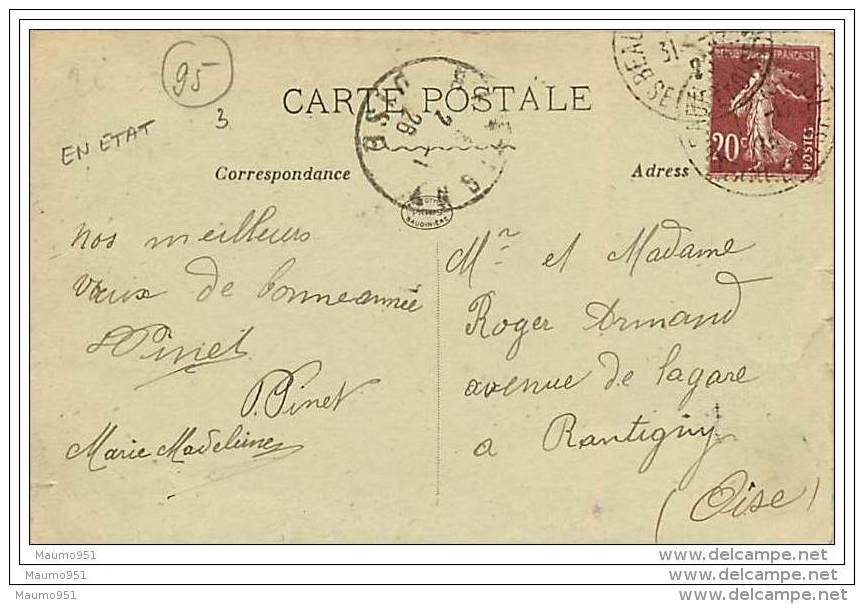 95
EN ETAT
3
CARTE POSTALE
Correspondance
Adress
RÉPUBLIQUE FRANÇAISE
20c
POSTES
BEAU
SEINE
31
26
BAUDINIÈRE
nos meilleurs
vœux de bonne année
Pinet
P. Pinet
Marie Madeleine
Mr et Madame
Roger Armand
avenue de lagare
a Rantigny
(Oise)
Maumo951
www.delcampe.net
Maumo951
www.delcampe.net
Maumo951
www.delcampe.net